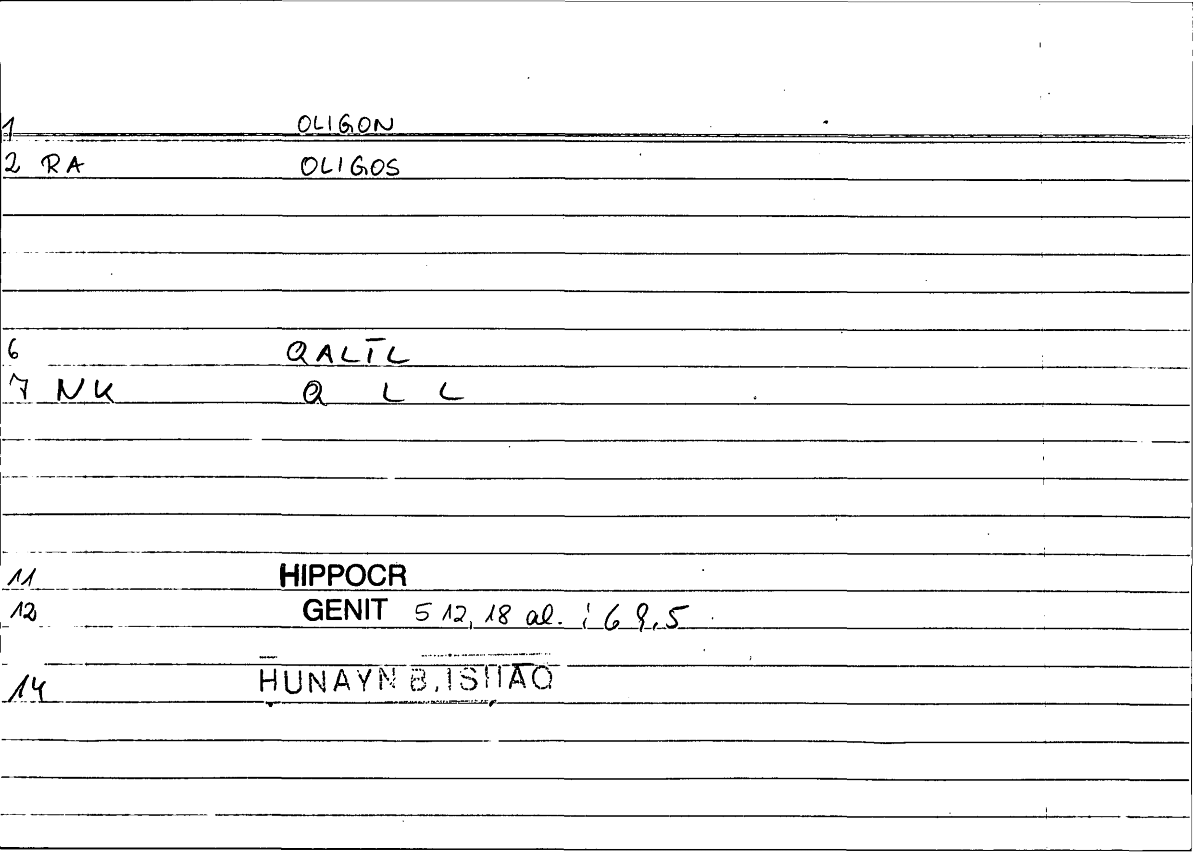 1 OLIGON
2 RA OLIGOS
6 QALĪL
7 NK Q L L
11 HIPPOCR
12 GENIT 5 12,18 al. ; 6 9,5
14 ḤUNAYN B.ISḤĀQ